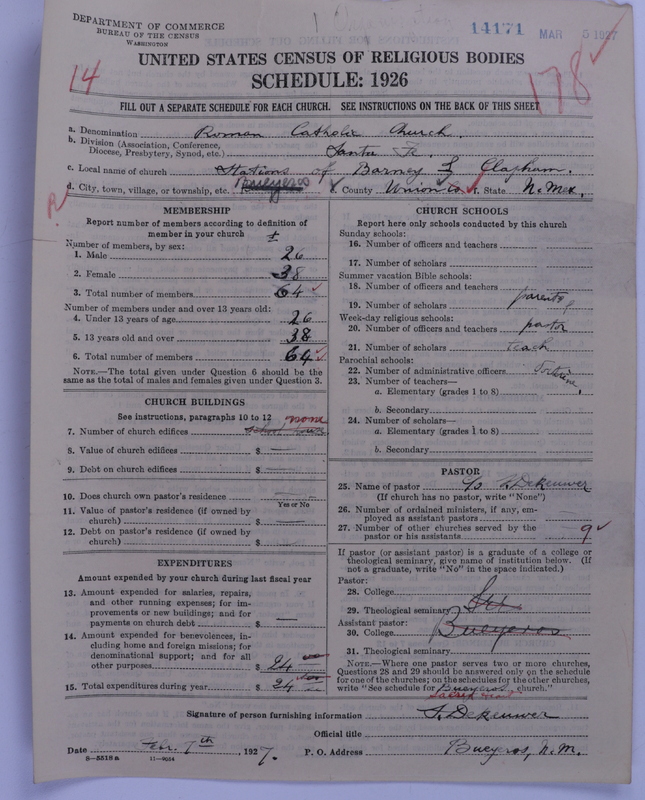 DEPARTMENT OF COMMERCE
BUREAU OF THE CENSUS
WASHINGTON
14171
MAR 5 1927
UNITED STATES CENSUS OF RELIGIOUS BODIES
SCHEDULE: 1926
14
178
FILL OUT A SEPARATE SCHEDULE FOR EACH CHURCH. SEE INSTRUCTIONS ON THE BACK OF THIS SHEET
a. Denomination Roman Catholic Church.
b. Division (Association, Conference,
Diocese, Presbytery, Synod, etc.) Santa Fe.
c. Local name of church Stations of Barney & Clapham.
d. City, town, village, or township, etc. Bueyeros County Union Co. State N. Mex.
R
MEMBERSHIP
Report number of members according to definition of
member in your church
±
Number of members, by sex:
1. Male 26
2. Female 38
3. Total number of members 64
Number of members under and over 13 years old:
4. Under 13 years of age 26
5. 13 years old and over 38
6. Total number of members 64
NOTE.—The total given under Question 6 should be the
same as the total of males and females given under Question 3.
CHURCH BUILDINGS
See instructions, paragraphs 10 to 12
none
7. Number of church edifices
8. Value of church edifices $
9. Debt on church edifices $
10. Does church own pastor's residence
Yes or No
11. Value of pastor's residence (if owned by
church) $
12. Debt on pastor's residence (if owned by
church) $
EXPENDITURES
Amount expended by your church during last fiscal year
13. Amount expended for salaries, repairs,
and other running expenses; for im-
provements or new buildings; and for
payments on church debt $ —
14. Amount expended for benevolences, in-
cluding home and foreign missions; for
denominational support; and for all
other purposes $ 24
15. Total expenditures during year $ 24
CHURCH SCHOOLS
Report here only schools conducted by this church
Sunday schools:
16. Number of officers and teachers
17. Number of scholars
Summer vacation Bible schools:
18. Number of officers and teachers
19. Number of scholars parents
Week-day religious schools:
20. Number of officers and teachers pastor
21. Number of scholars teach
Parochial schools:
22. Number of administrative officers doctrine.
23. Number of teachers—
a. Elementary (grades 1 to 8)
b. Secondary
24. Number of scholars—
a. Elementary (grades 1 to 8)
b. Secondary
PASTOR
25. Name of pastor c/o S. Dekeuwer
(If church has no pastor, write "None")
26. Number of ordained ministers, if any, em-
ployed as assistant pastors
27. Number of other churches served by the
pastor or his assistants 9
If pastor (or assistant pastor) is a graduate of a college or
theological seminary, give name of institution below. (If
not a graduate, write "No" in the space indicated.)
Pastor:
28. College
29. Theological seminary
Assistant pastor:
30. College Bueyeros
31. Theological seminary
NOTE.—Where one pastor serves two or more churches,
Questions 28 and 29 should be answered only on the schedule
for one of the churches; on the schedules for the other churches,
write "See schedule for Bueyeros church."
Sacred Heart
Signature of person furnishing information S. Dekeuwer
Official title
Date Feb. 7th, 1927. P. O. Address Bueyeros, N. M.
8—5518 a 11—9054